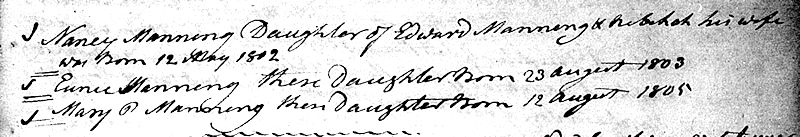 Nancy Manning Daughter of Edward Manning & Rebekah his wife
was born 12 May 1802
Eunice Manning there Daughter born 23 august 1803
Mary P Manning there Daughter born 12 august 1805